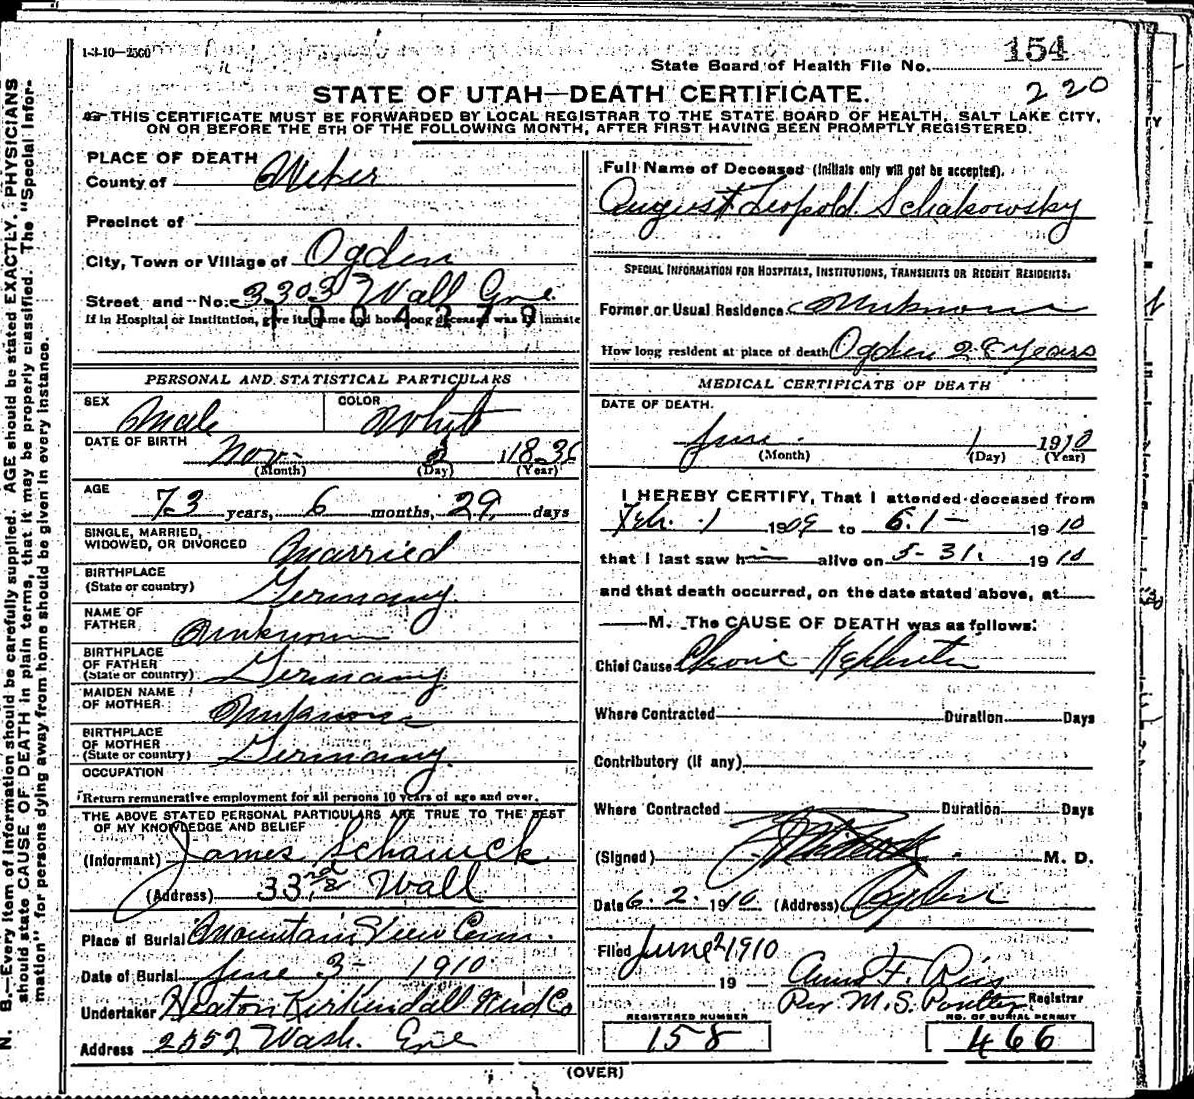 1-3-10—2500
State Board of Health File No. 154
220
STATE OF UTAH—DEATH CERTIFICATE.
THIS CERTIFICATE MUST BE FORWARDED BY LOCAL REGISTRAR TO THE STATE BOARD OF HEALTH, SALT LAKE CITY,
ON OR BEFORE THE 5TH OF THE FOLLOWING MONTH, AFTER FIRST HAVING BEEN PROMPTLY REGISTERED.
PLACE OF DEATH
County of Weber
Precinct of
City, Town or Village of Ogden
Street and No. 3303 Wall Ave
If in Hospital or Institution, give its name and how long deceased was an inmate
1004279
PERSONAL AND STATISTICAL PARTICULARS
SEX Male COLOR White
DATE OF BIRTH Nov. 2 1836
(Month) (Day) (Year)
AGE 73 years, 6 months, 29 days
SINGLE, MARRIED,
WIDOWED, OR DIVORCED Married
BIRTHPLACE
(State or country) Germany
NAME OF
FATHER Unknown
BIRTHPLACE
OF FATHER
(State or country) Germany
MAIDEN NAME
OF MOTHER Unknown
BIRTHPLACE
OF MOTHER
(State or country) Germany
OCCUPATION
Return remunerative employment for all persons 10 years of age and over.
THE ABOVE STATED PERSONAL PARTICULARS ARE TRUE TO THE BEST
OF MY KNOWLEDGE AND BELIEF
(Informant) James Schanick
(Address) 33rd & Wall
Place of Burial Mountain View Cem.
Date of Burial June 3- 1910
Undertaker Heaton Kirkendall Und Co
Address 2552 Wash. Ave
Full Name of Deceased (Initials only will not be accepted).
August Leopold Schakowsky
SPECIAL INFORMATION FOR HOSPITALS, INSTITUTIONS, TRANSIENTS OR RECENT RESIDENTS.
Former or Usual Residence Unknown
How long resident at place of death Ogden 28 years
MEDICAL CERTIFICATE OF DEATH
DATE OF DEATH.
June 1 1910
(Month) (Day) (Year)
I HEREBY CERTIFY, That I attended deceased from
Feb. 1 1909 to 6.1- 1910
that I last saw him alive on 5-31. 1910
and that death occurred, on the date stated above, at
M. The CAUSE OF DEATH was as follows:
Chief Cause Chronic Nephritis
Where Contracted Duration Days
Contributory (if any)
Where Contracted Duration Days
(Signed) M. D.
Date 6.2.1910 (Address) Ogden
Filed June 2 1910
19 Anna F.
Per M.S. Poulter Registrar
REGISTERED NUMBER
158
NO. OF BURIAL PERMIT
466
(OVER)
N. B.—Every item of information should be carefully supplied. AGE should be stated EXACTLY. PHYSICIANS
should state CAUSE OF DEATH in plain terms, that it may be properly classified. The "Special Infor-
mation" for persons dying away from home should be given in every instance.